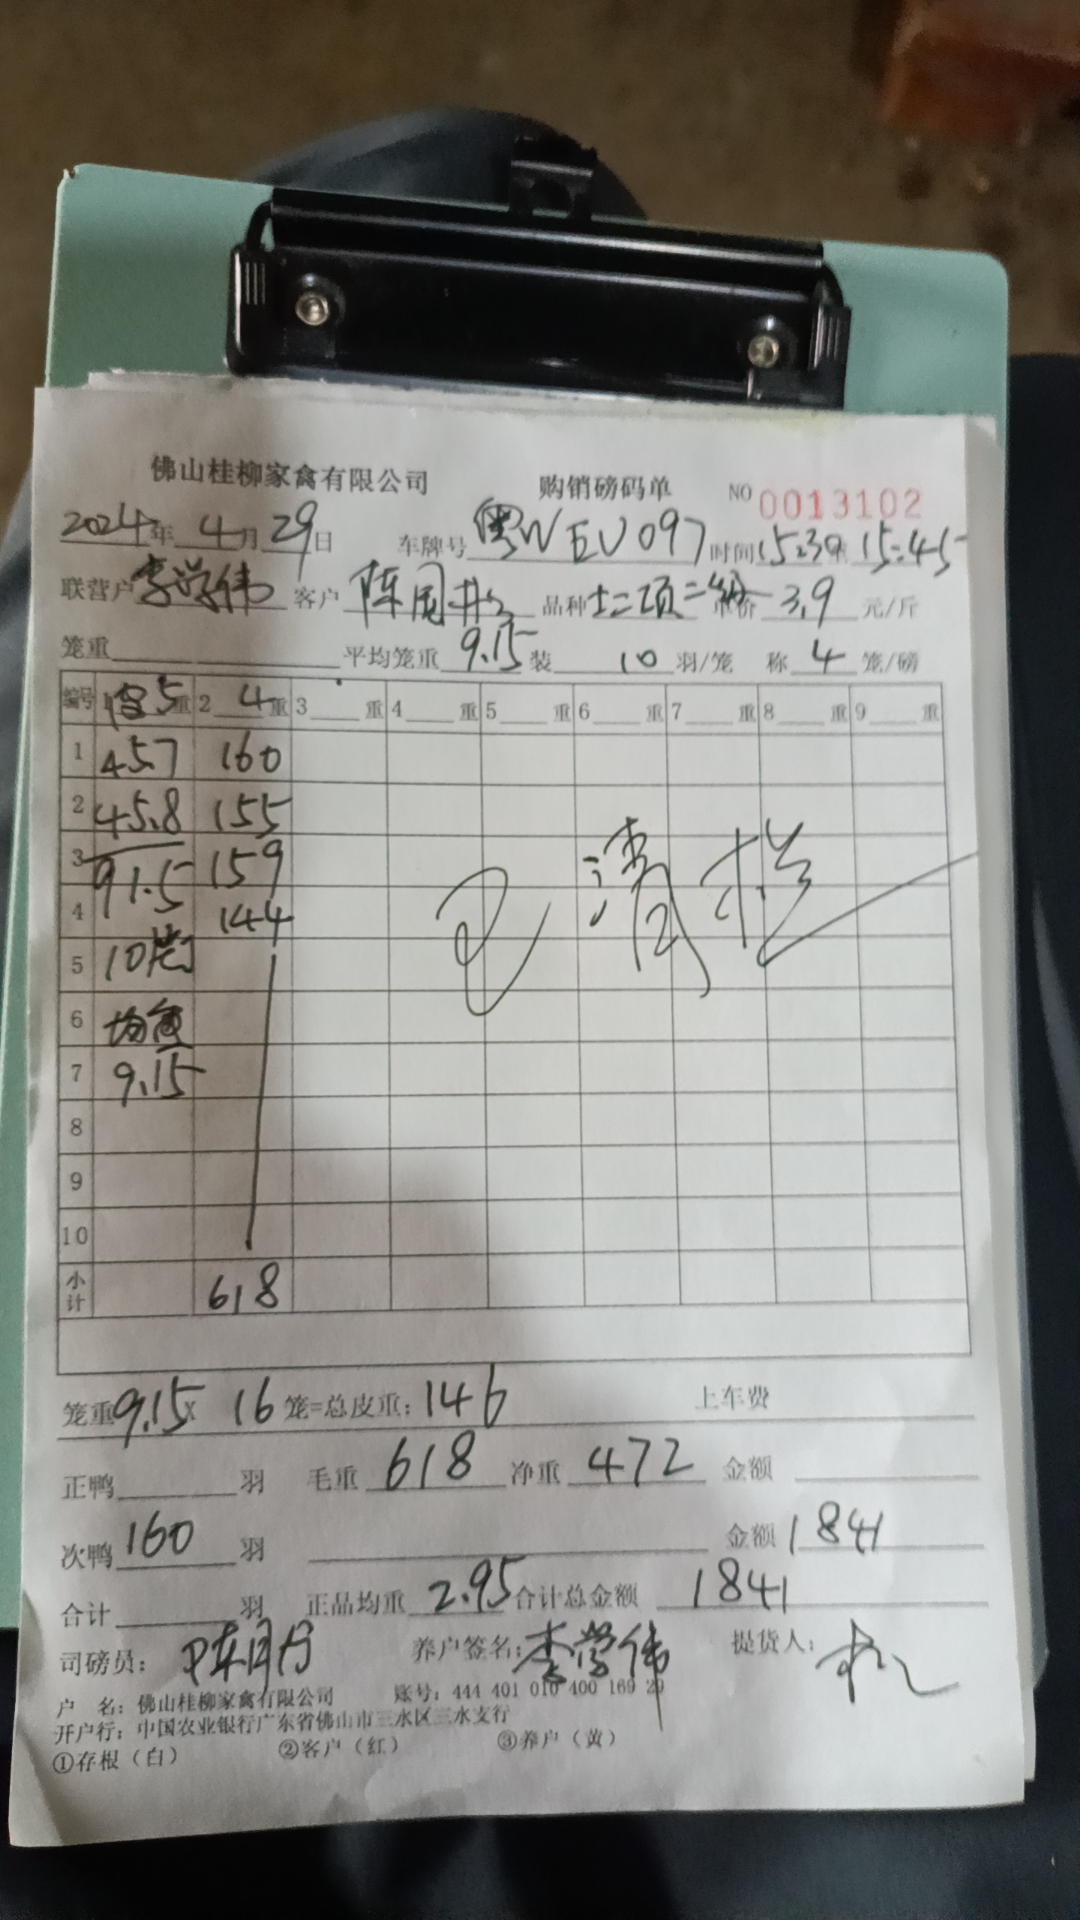 佛山桂柳家禽有限公司 购销磅码单 NO 0013102
2024年 4月 29日 车牌号 粤WEV097 时间 15:30至 15:45
联营户 李学伟 客户 陈国 品种 土二项二 单价 3.9 元/斤
笼重 平均笼重 9.15 装 10 羽/笼 称 4 笼/磅
编号 1 空5 重 2 4 重 3 重 4 重 5 重 6 重 7 重 8 重 9 重
1 45.7 160
2 45.8 155
3 91.5 159
4 144
5 10笼
6 均重
7 9.15
8
9
10
小计 618
已清栏
笼重 9.15 X 16 笼=总皮重: 146 上车费
正鸭 羽 毛重 618 净重 472 金额
次鸭 160 羽 金额 1841
合计 羽 正品均重 2.95 合计总金额 1841
司磅员: 陈月 养户签名: 李学伟 提货人:
户 名: 佛山桂柳家禽有限公司 账号: 444 401 010 400 169 29
开户行: 中国农业银行广东省佛山市三水区三水支行
①存根(白) ②客户(红) ③养户(黄)